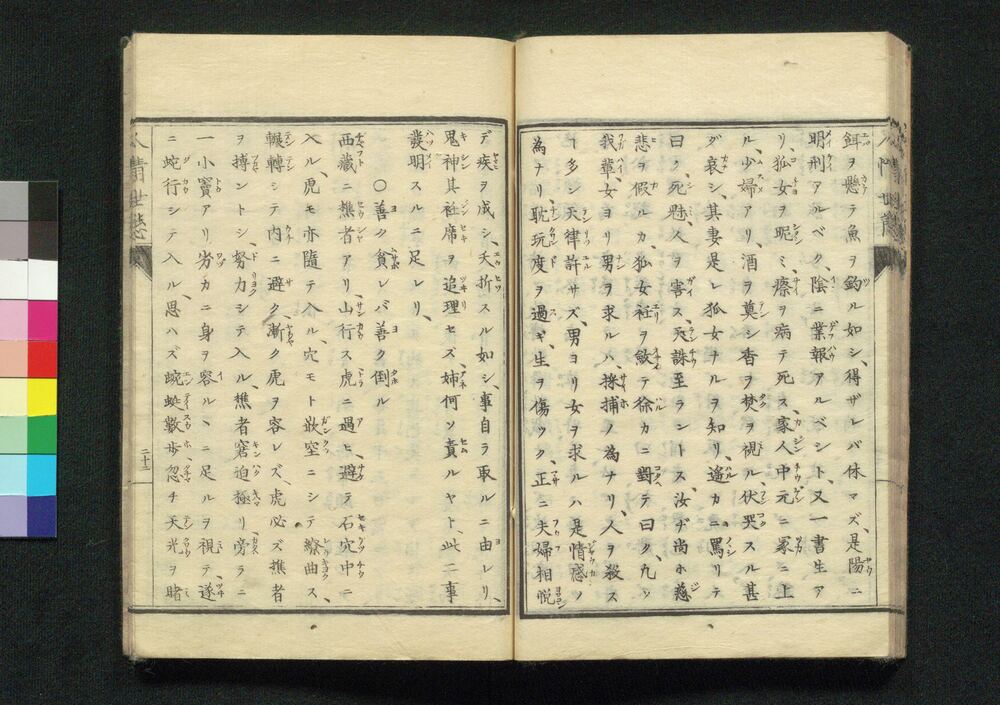 餌ヲ懸テ魚ヲ釣ル如シ、得ザレバ休マズ、是陽ニ
明刑アルベク、陰ニ業報アルベシト、又一書生ア
リ、狐女ヲ昵ミ、瘵ヲ病テ死ス、家人中元ニ冢ニ上
ル、少婦アリ、酒ヲ奠シ香ヲ焚ヲ視ル、伏哭スル甚
ダ哀シ、其妻是レ狐女ナルヲ知リ、遙カニ罵リテ
曰ク、死魅、人ヲ害ス、天誅至ラントス、汝ヂ尚ホ慈
悲ヲ假ルカ、狐女衽ヲ斂テ徐カニ對テ曰ク、凡ソ
我輩女ヨリ男ヲ求ルハ、採捕ノ為ナリ、人ヲ殺ス
ト多シ、天律許サズ、男ヨリ女ヲ求ルハ是情感ノ
為ナリ、耽玩度ヲ過ギ、生ヲ傷ツク、正ニ夫婦相悦
デ疾ヲ成シ、夭折スル如シ、事自ラ取ルニ由レリ、
鬼神其衽席ヲ追理セズ、姉何ソ責ルヤト、此二事
發明スルニ足レリ、
○善ク貪レバ善ク倒ル
西藏ニ樵者アリ、山行ス、虎ニ遇ヒ、避テ石穴中ニ
入ル、虎モ亦隨テ入ル、穴モト嵌空ニシテ繚曲ス、
輾轉シテ内ニ避ク、漸ク虎ヲ容レズ、虎必ズ樵者
ヲ搏ントシ、努力シテ入ル、樵者窘迫極リ、旁ラニ
一小竇アリ、労カニ身ヲ容ルヽニ足ルヲ視テ、遂
ニ蛇行シテ入ル、思ハズ蜿蜒數歩、忽チ天光ヲ睹
人情世態
二十二